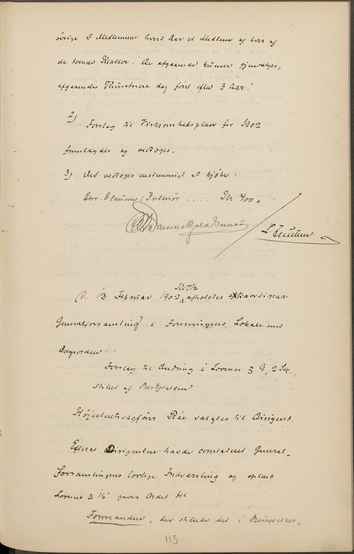 øvrige 8 Medlemmer hvert Aar et Medlem og hver af
de tvende Kasser. De afgaaende kunne gjenvælges,
afgaaende Funktionær dog først efter 3 Aar.
2) Forslag til Virksomhedsplan for 1902
fremlagdes og vedtoges.
3) Det vedtoges enstemmigt at kjøbe:
Interiør ..... Kr 400.
D. 13 Februar 1902 afholdtes extraordinær
Generalforsamling i Foreningens Lokale med
Dagsorden:
Forslag til Ændring i Lovene § 9, 2 Stk.
stillet af Bestyrelsen
Højesteretssagfører valgtes til Dirigent.
Efterat Dirigenten havde constateret General-
forsamlingens lovlige Indvarsling og oplæst
Lovene gaves Ordet til
Formanden, der stillede det i
113